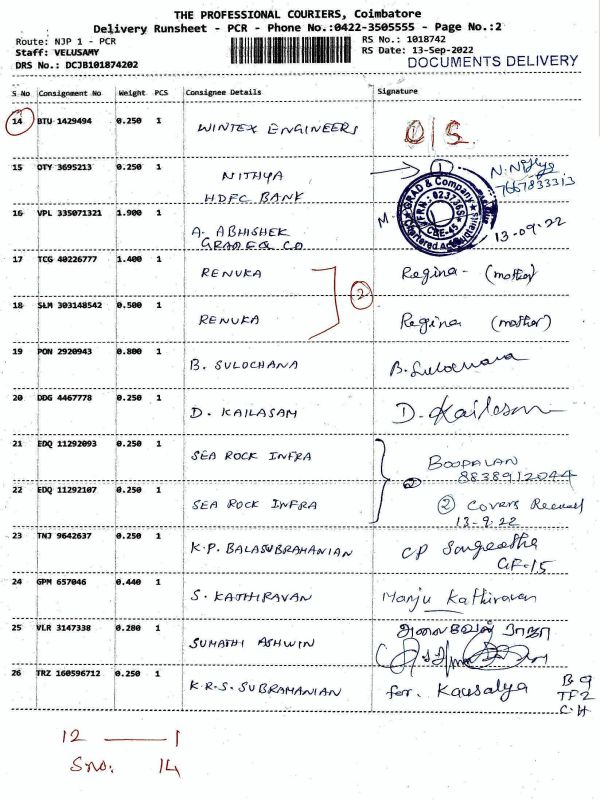 THE PROFESSIONAL COURIERS, Coimbatore
Delivery Runsheet - PCR - Phone No.:0422-3505555 - Page No.:2
Route: NJP 1 - PCR
RS No.: 1018742
Staff: VELUSAMY
RS Date: 13-Sep-2022
DRS No.: DCJB101874202
DOCUMENTS DELIVERY
S No Consignment No Weight PCS Consignee Details Signature
14 BTU 1429494 0.250 1 WINTEX ENGINEERS O/S.
15 OTY 3695213 0.250 1 NITHYA
HDFC BANK
1
7667833313
16 VPL 335071321 1.900 1 A. ABHISHEK
GRAD & CO
GRAD & Company
FRN: 023736S
CBE-45
Chartered Accountants
13-09-22
17 TCG 40226777 1.400 1 RENUKA Regina - (mother)
2
18 SLM 303148542 0.500 1 RENUKA Regina (mother)
19 PON 2920943 0.800 1 B. SULOCHANA B. Sulochana
20 DDG 4467778 0.250 1 D. KAILASAM D. Kailasam
21 EDQ 11292093 0.250 1 SEA ROCK INFRA BOOPALAN
8838912044
22 EDQ 11292107 0.250 1 SEA ROCK INFRA 2 Covers Received
13-9-22
23 TNJ 9642637 0.250 1 K.P. BALASUBRAMANIAN CP Sangeetha
GF-15
24 GPM 657046 0.440 1 S. KATHIRAVAN Manju Kathiravan
25 VLR 3147338 0.280 1 SUMATHI ASHWIN
26 TRZ 160596712 0.250 1 K.R.S. SUBRAMANIAN for. Kausalya B9
TF2
C.H
12 — 1
S no: 14